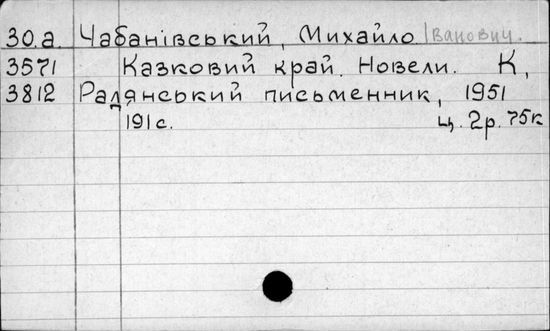 30.а. Чабанівський, Михайло Іванович.
3571 Казковий край. Новели. К,
3812 Радянський письменник, 1951
191с. ц. 2р. 75к